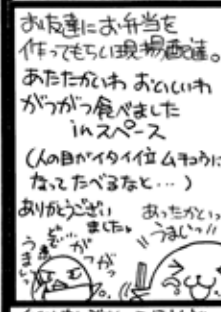 お友達にお弁当を
作ってもらい現場配達。
あたたかいわ おいしいわ
がつがつ食べました
inスペース
(人の目がイタイ位ムチゥうに
なってたべるなと…)
ありがとうござい
ました。
あったかいっ
うましっ!!
うまい
がつがつ